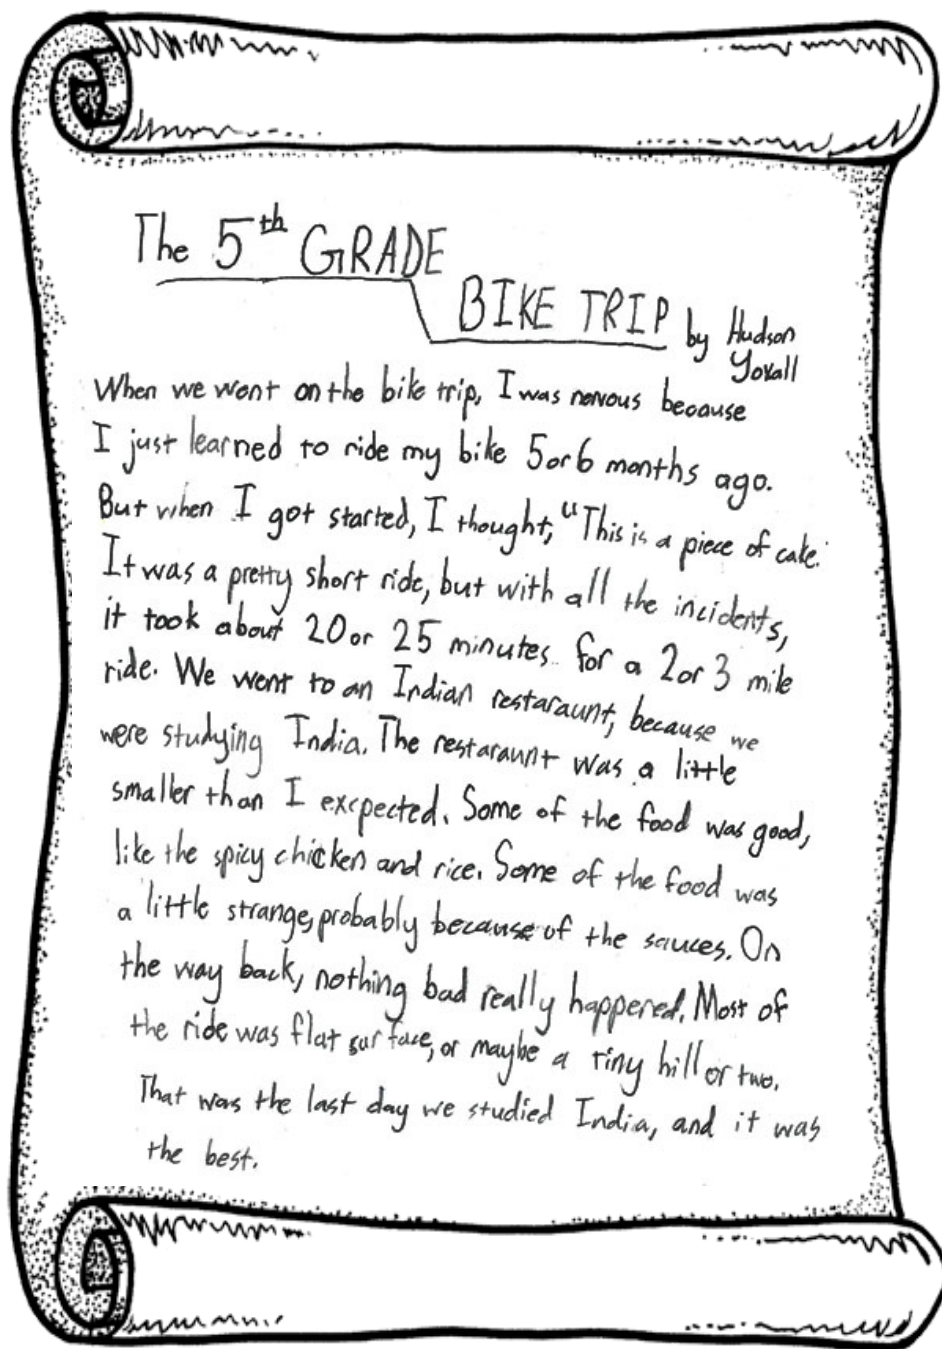 The 5th GRADE
BIKE TRIP by Hudson
Yovall
When we went on the bike trip, I was nervous because
I just learned to ride my bike 5 or 6 months ago.
But when I got started, I thought, "This is a piece of cake."
It was a pretty short ride, but with all the incidents,
it took about 20 or 25 minutes for a 2 or 3 mile
ride. We went to an Indian restaraunt, because we
were studying India. The restaraunt was a little
smaller than I excpected. Some of the food was good,
like the spicy chicken and rice. Some of the food was
a little strange, probably because of the sauces. On
the way back, nothing bad really happened. Most of
the ride was flat surface, or maybe a tiny hill or two.
That was the last day we studied India, and it was
the best.